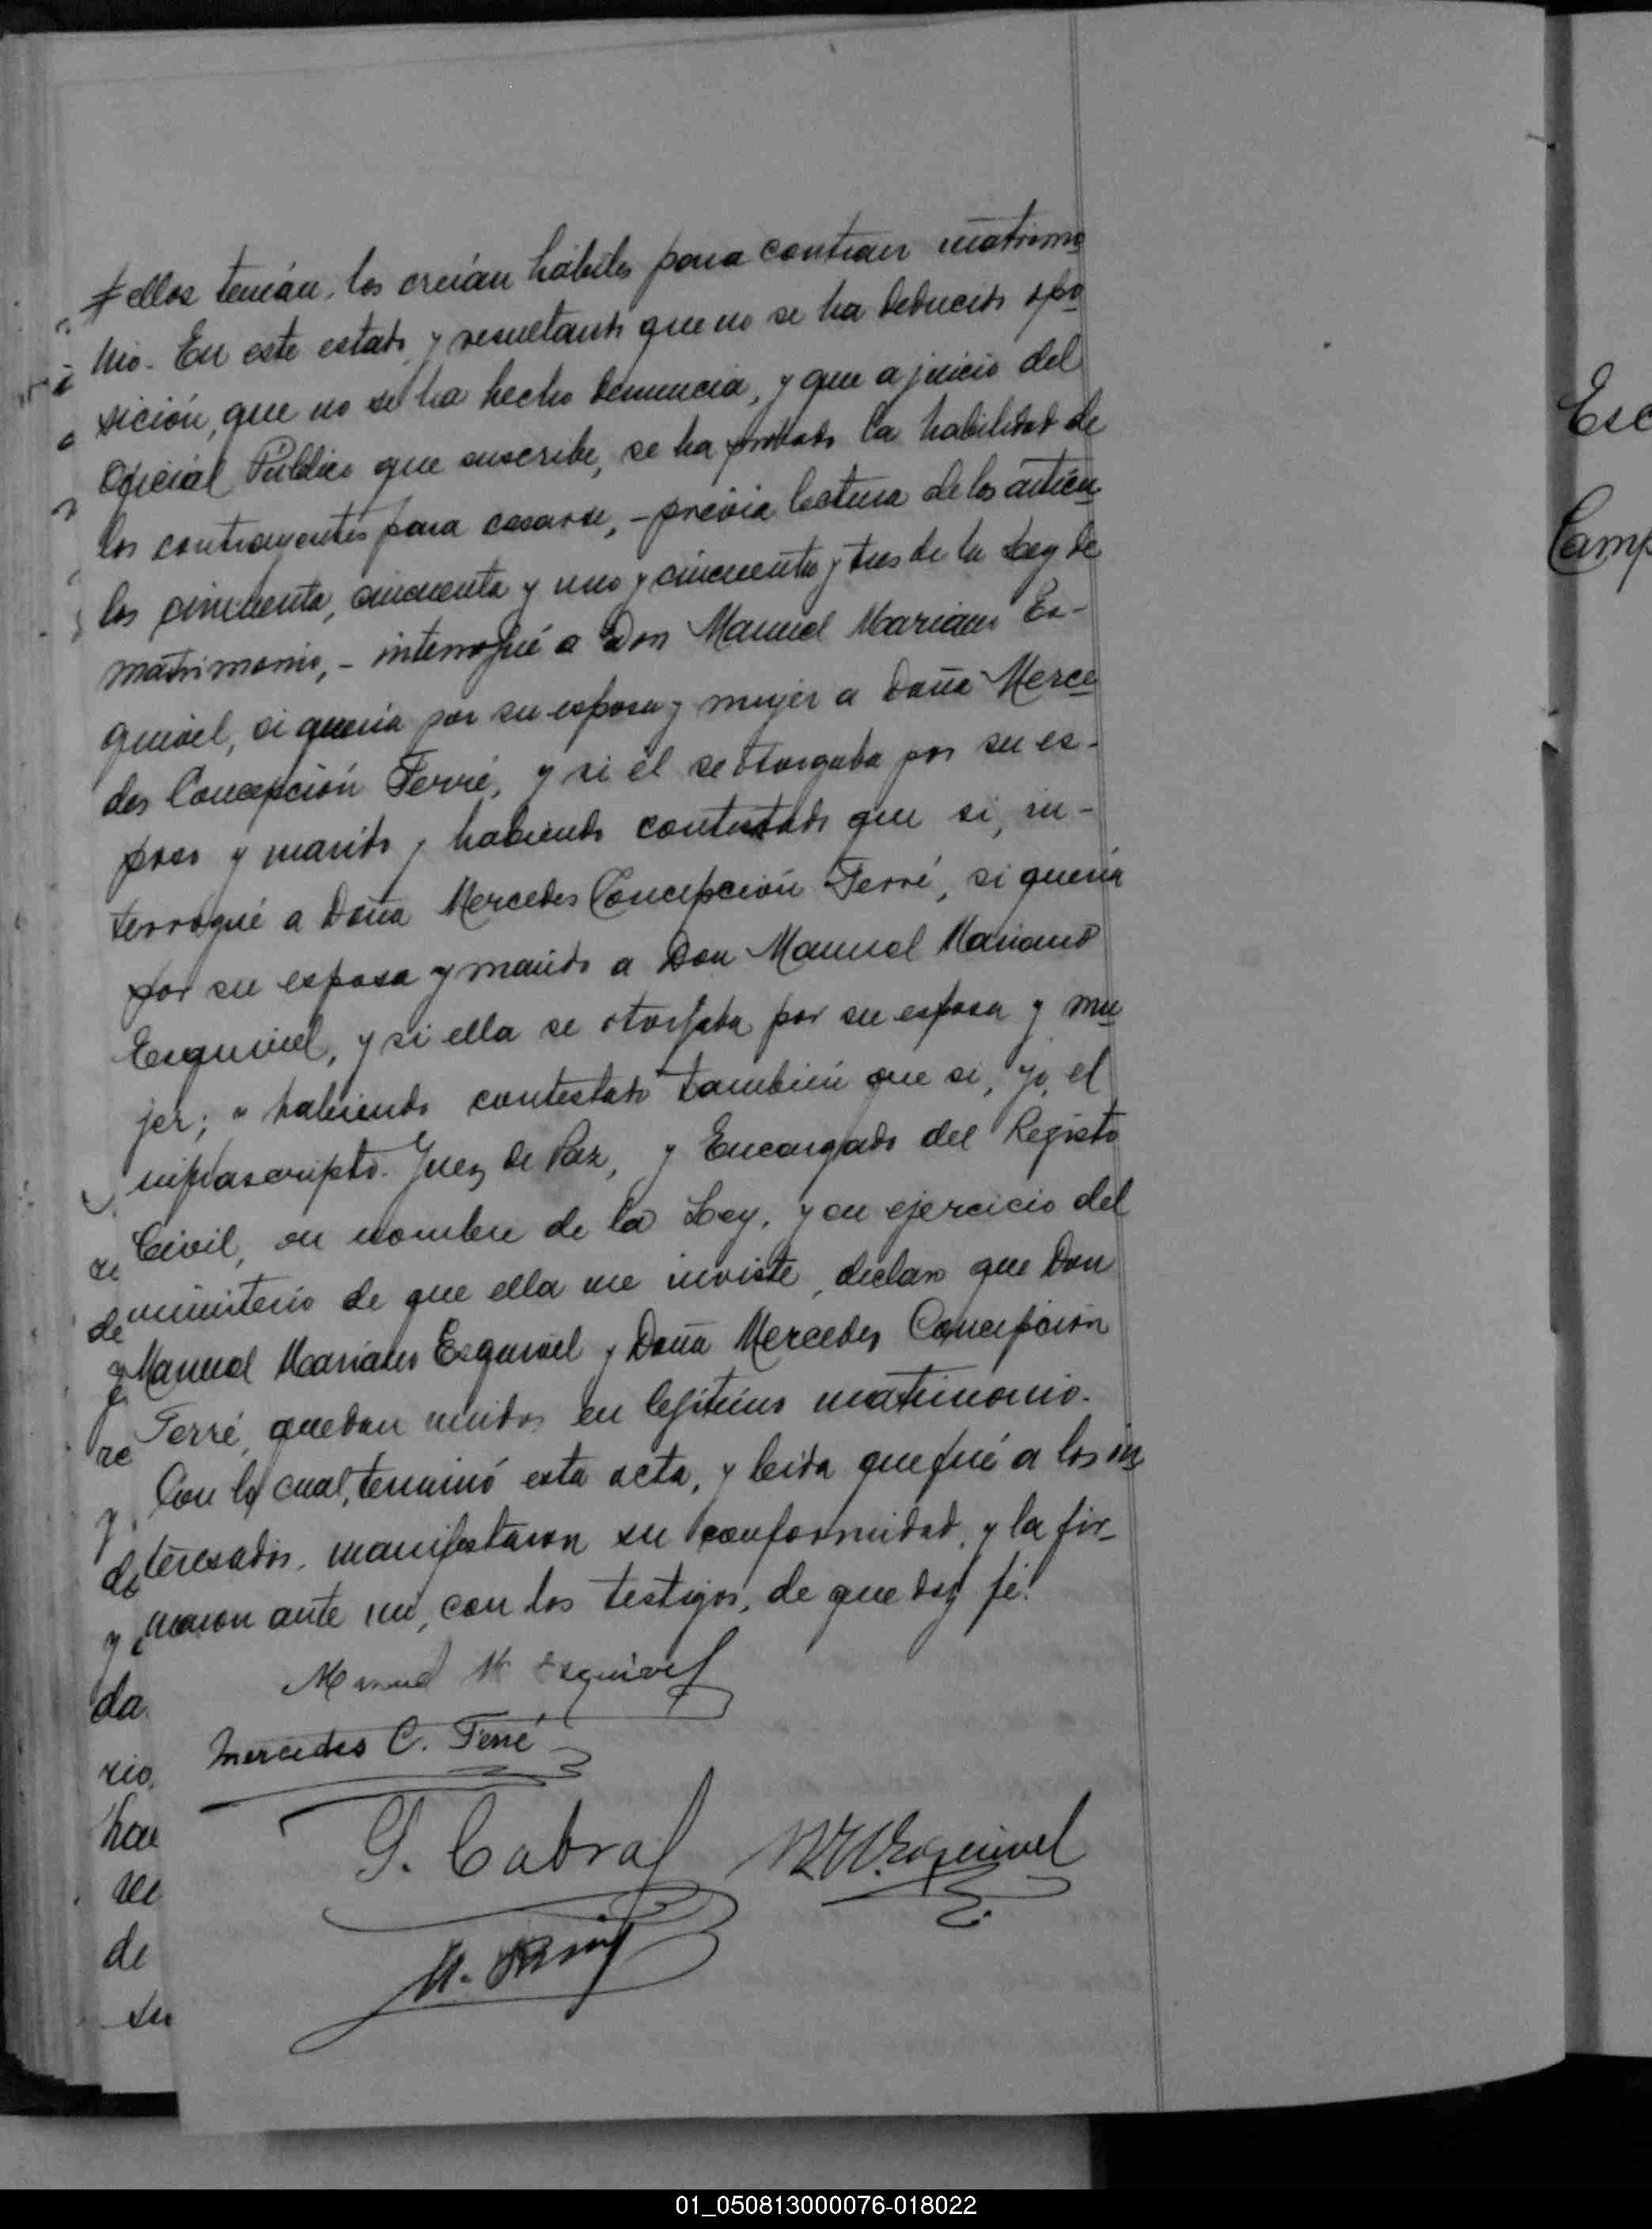 ellos tenían, los creían hábiles para contraer matrimo
nio. En este estado, y resultando que no se ha deducido opo
sición, que no se ha hecho denuncia, y que a juicio del
Oficial Público que suscribe, se ha probado la habilidad de
los contrayentes para casarse, - previa lectura de los artícu
los cincuenta, cincuenta y uno y cincuenta y tres de la Ley de
matrimonio, - interrogué a Don Manuel Mariano Es-
quivel, si quería por su esposa y mujer a Doña Merce
des Concepción Ferré, y si él se otorgaba por su es-
poso y marido y habiendo contestado que si, in-
terrogué a Doña Mercedes Concepción Ferré, si quería
por su esposo y marido a Don Manuel Mariano
Esquivel, y si ella se otorgaba por su esposa y mu
jer; y habiendo contestado también que si, yo, el
infrascripto Juez de Paz, y Encargado del Registro
Civil, en nombre de la Ley, y en ejercicio del
ministerio de que ella me inviste, declaro que Don
Manuel Mariano Esquivel y Doña Mercedes Concepción
Ferré, quedan unidos en legítimo matrimonio.
Con lo cual, terminó esta acta, y leida que fué a los in
teresados, manifestaron su conformidad, y la fir-
maron ante mi, con los testigos, de que doy fé.
Manuel M Esquivel
Mercedes C. Ferré
G. Cabral
Esquivel
da
rio,
hau
de
su
Esc
Camp
01_050813000076-018022